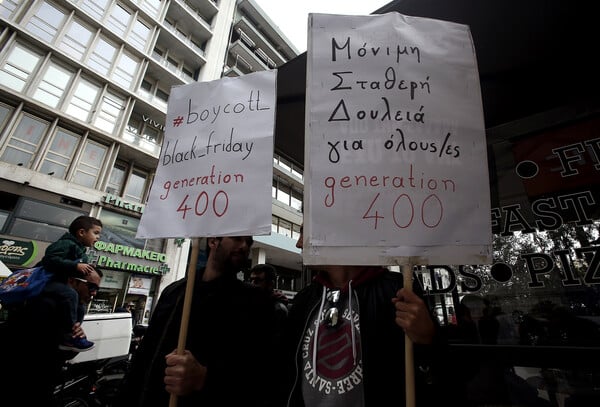 #boycott_
black_friday
generation
400
Μόνιμη
Σταθερή
Δουλειά
για όλους/ες
generation
400
ΦΑΡΜΑΚΕΙΟ
Pharmacy
FAST
PIZZ
SANTA CRUZ